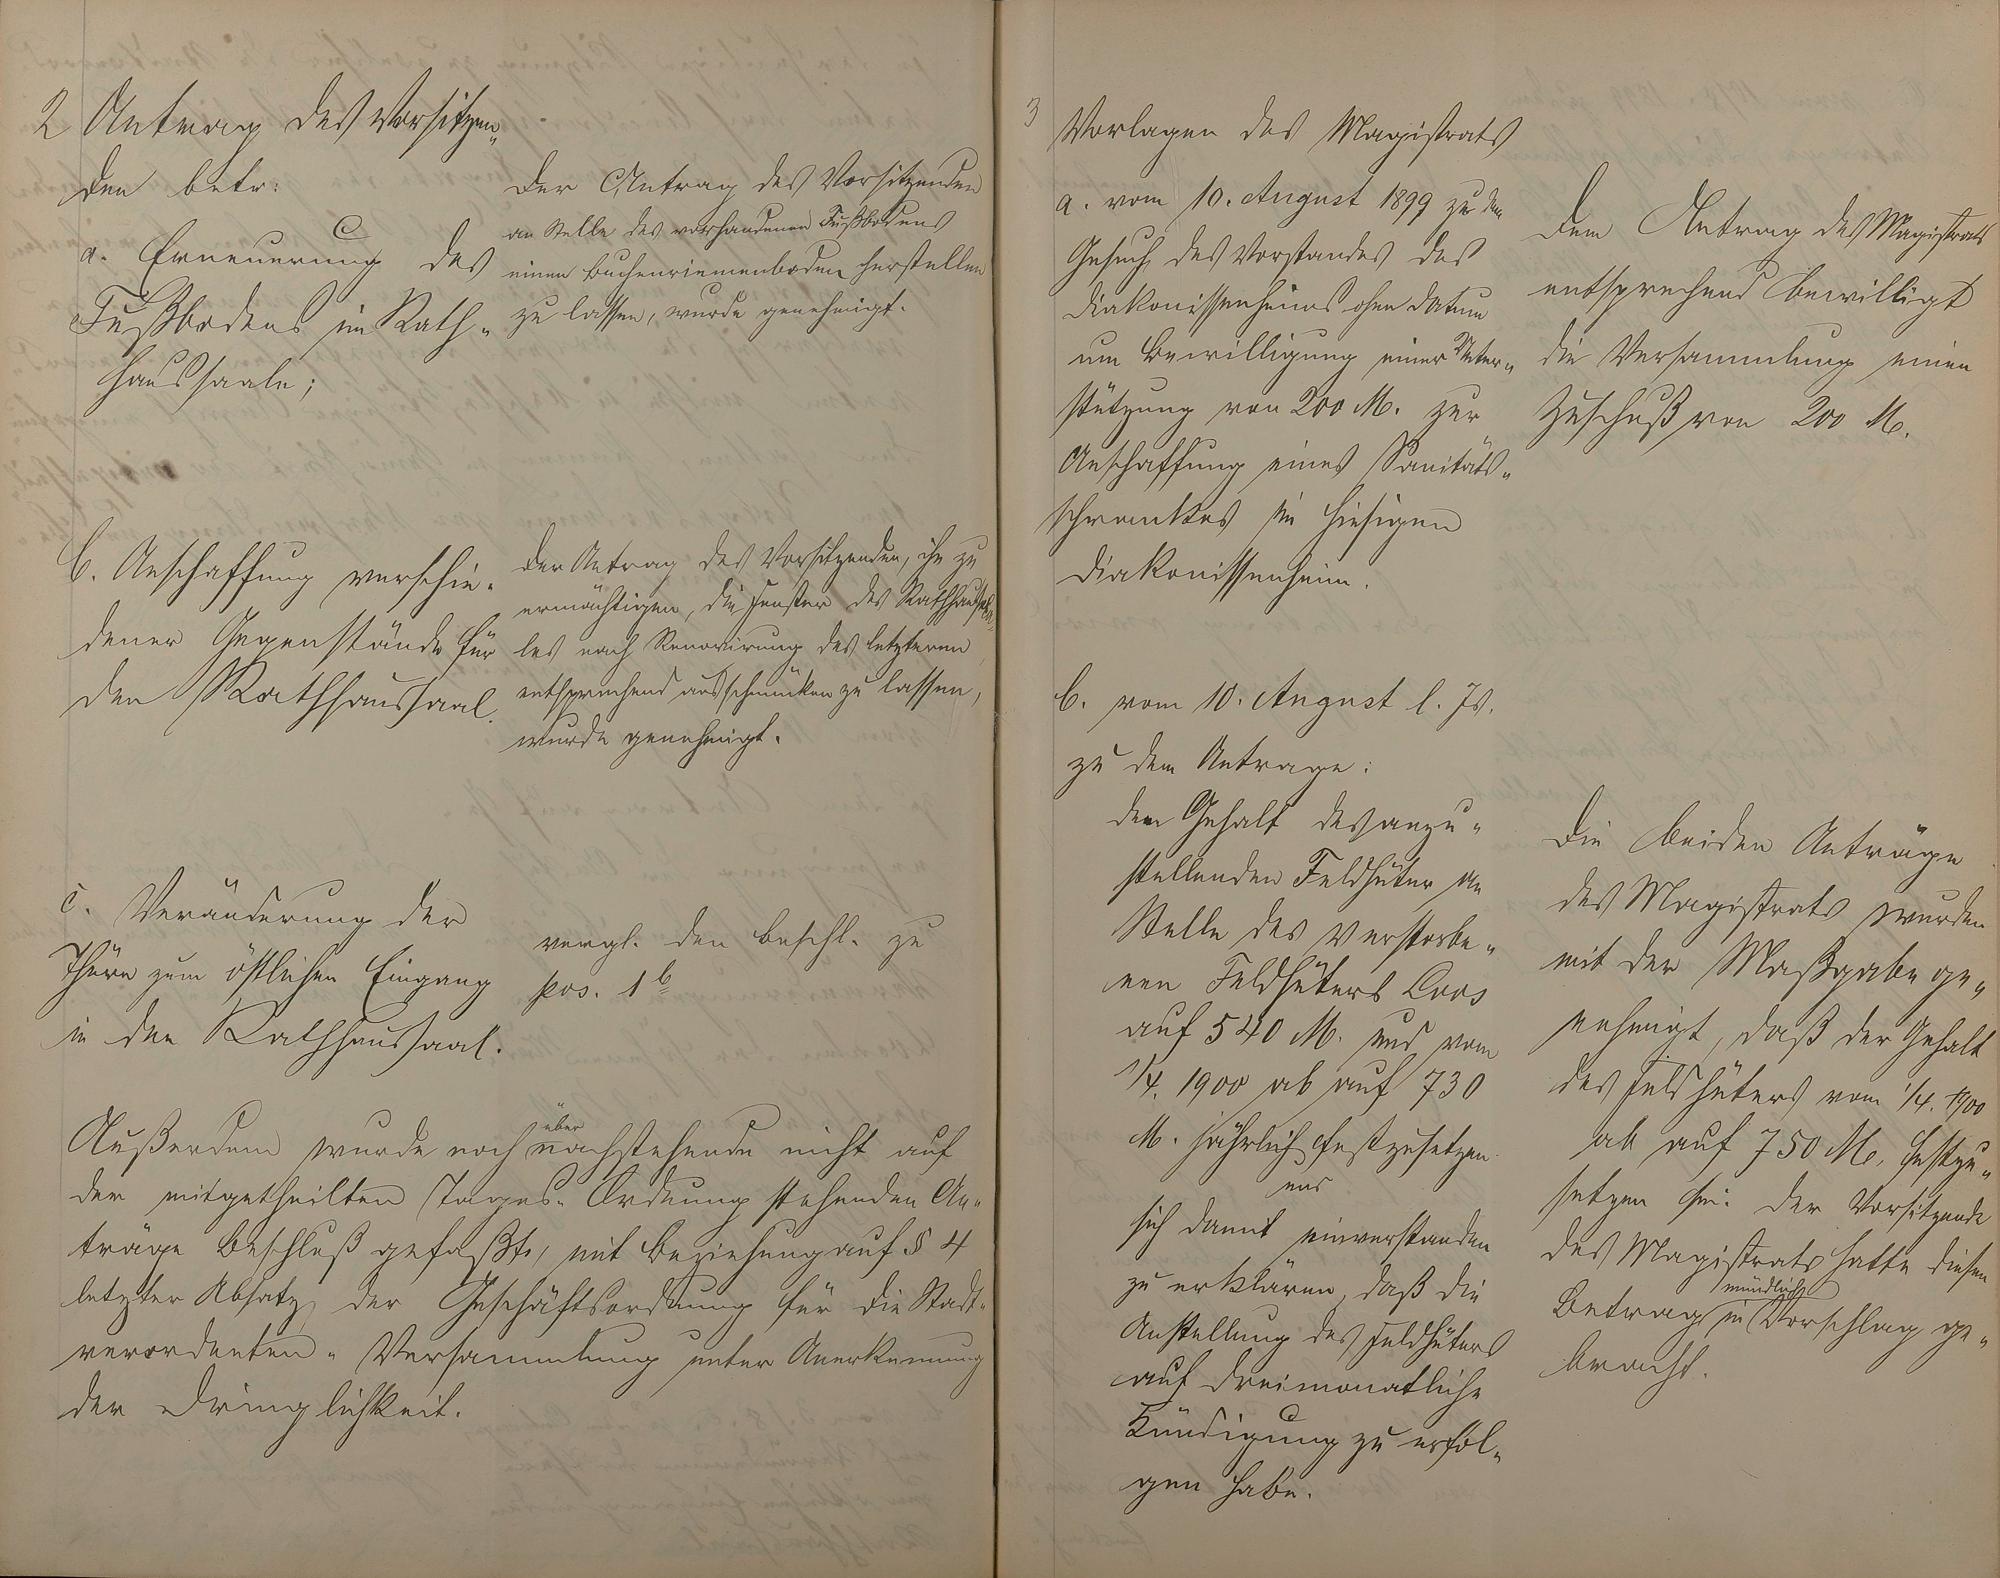 2 Antrag des Vorsitzen-
den betr:
a. Erneuerung des
Fußbodens im Rath-
haussaale;
Der Antrag des Vorsitzenden
an Stelle des vorhandenen Fußbodens
einen Buchenriemenboden herstellen
zu lassen, wurde genehmigt.
b. Anschaffung verschie-
dener Gegenstände für
den Rathhaussaal.
Der Antrag des Vorsitzenden, ihn zu
ermächtigen, die Fenster des Rathhaussaa-
les nach Renovirung des letzteren
entsprechend ausschmücken zu lassen,
wurde genehmigt.
c. Veränderung der
Thüre zum östlichen Eingang
in den Rathhaussaal.
vergl. den Beschl. zu
pos. 1b
Außerdem wurde noch über nachstehende nicht auf
der mitgetheilten Tages-Ordnung stehenden An-
träge Beschluß gefaßt, mit Beziehung auf § 4
letzter Absatz der Geschäftsordnung für die Stadt-
verordneten-Versammlung unter Anerkennung
der Dringlichkeit.
3 Vorlagen des Magistrats
a. vom 10. August 1899 zu dem
Gesuch des Vorstandes des
Diakonissenheims ohne Datum
um Bewilligung einer Unter-
stützung von 200 M. zur
Anschaffung eines Sanitäts-
schrankes im hiesigen
Diakonissenheim.
Dem Antrag des Magistrats
entsprechend bewilligt
die Versammlung einen
Zuschuß von 200 M.
b. vom 10. August l. Js.
zu dem Antrage:
den Gehalt des anzu-
stellenden Feldhüter an
Stelle des verstorbe-
nen Feldhüters Coos
auf 540 M. und vom
1/4. 1900 ab auf 730
M. jährlich festzusetzen
und
sich damit einverstanden
zu erklären, daß die
Anstellung des Feldhüters
auf dreimonatliche
Kündigung zu erfol-
gen habe.
Die beiden Anträge
des Magistrats wurden
mit der Maßgabe ge-
nehmigt, daß der Gehalt
des Feldhüters vom 1/4. 1900
ab auf 750 M. festzu-
setzen sei. Der Vorsitzende
des Magistrats hatte diesen
Betrag mündlich in Vorschlag ge-
bracht.